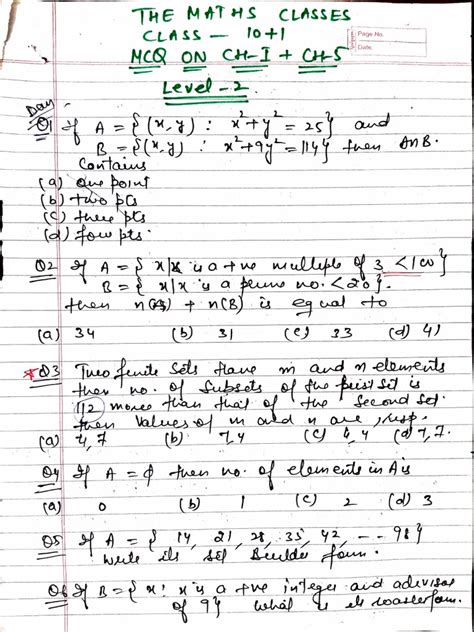 THE MATHS CLASSES
CLASS — 10+1
Page No.
Date
MCQ ON CH-I + CH-5
Level-2
Day
Q1 If A = {(x,y) : x²+y² = 25} and
B = {(x,y) : x²+9y² = 114} then A∩B.
Contains
(a) one point
(b) two pts
(c) three pts
(d) four pts.
Q2 If A = {x|x is a +ve multiple of 3 <100}
B = {x|x is a prime no. <20}.
then n(A) + n(B) is equal to
(a) 34 (b) 31 (c) 33 (d) 41
*Q3 Two finite sets have m and n elements
then no. of subsets of the first set is
112 more than that of the second set.
then values of m and n are, resp.
(a) 4,7 (b) 7,4 (c) 4,4 (d) 7,7.
Q4 If A = ϕ then no. of elements in A is
(a) 0 (b) 1 (c) 2 (d) 3
Q5 If A = {14, 21, 28, 35, 42, --- 98}
write its set Builder form.
Q6 If B = {x: x is a +ve integer and a divisor
of 9} what is its roaster form.